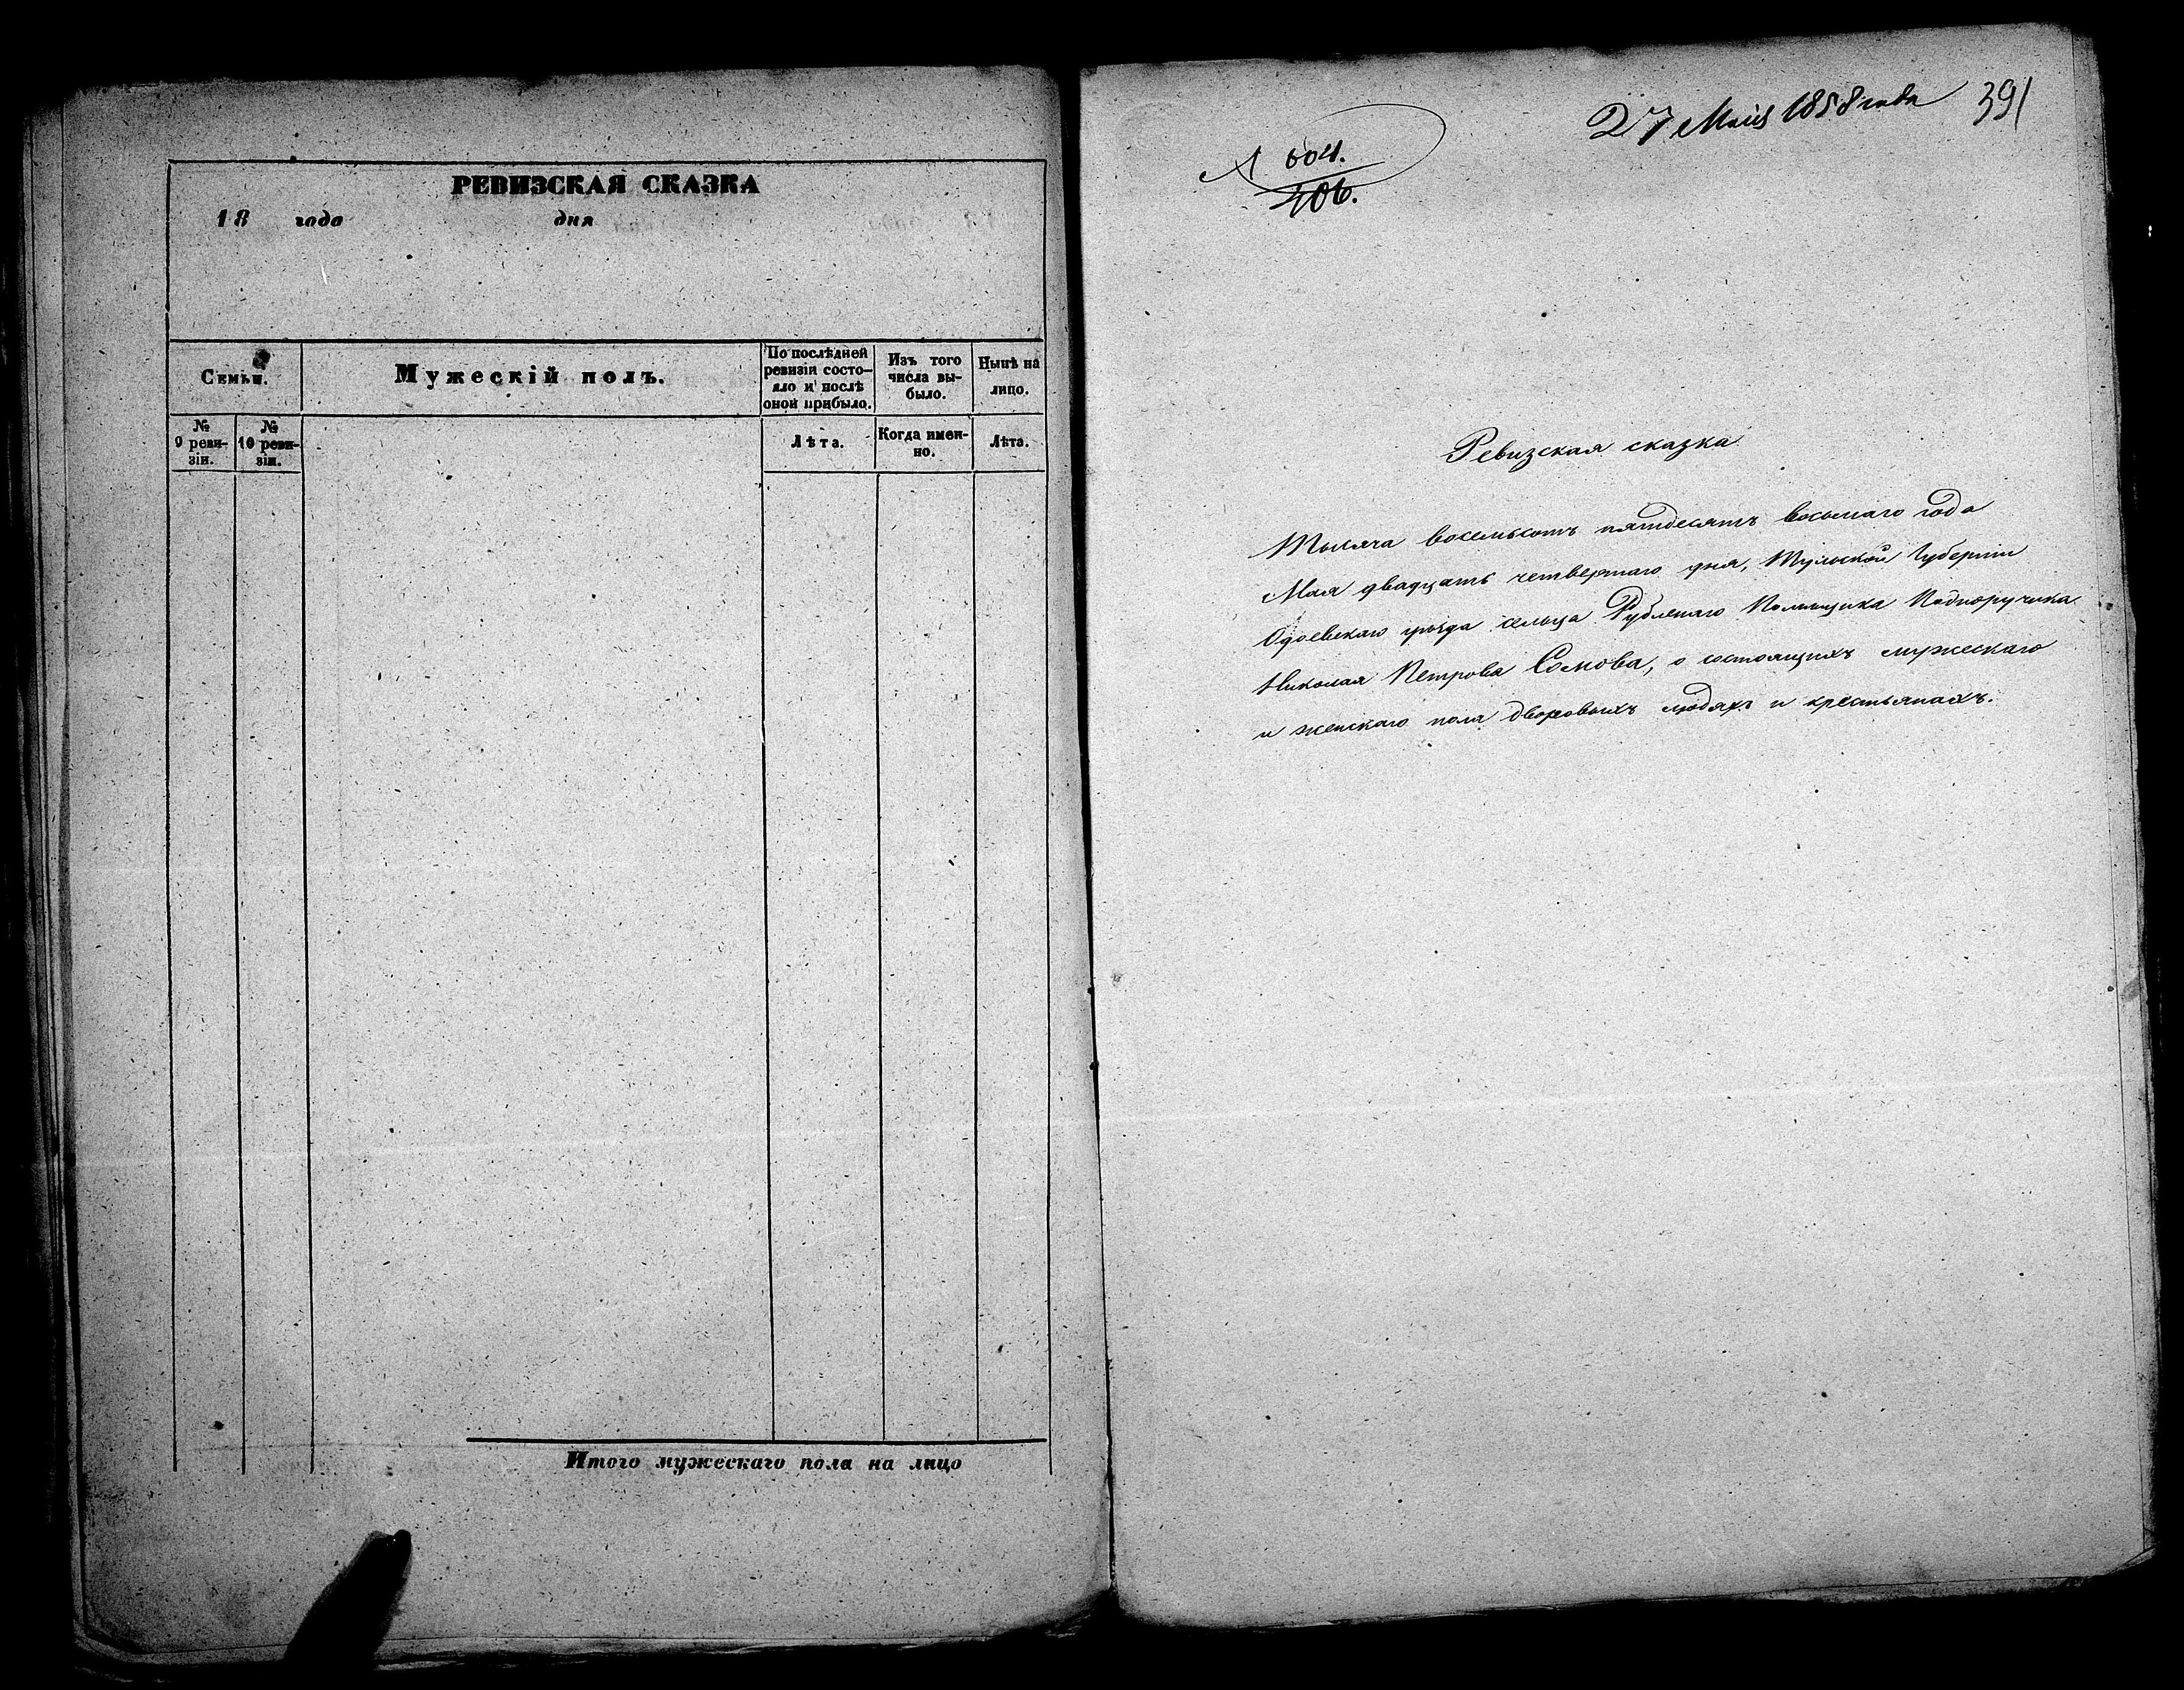 РЕВИЗСКАЯ СКАЗКА
18 года дня
Семьи.
Мужескій полъ.
По послѣдней ревизіи состо-
яло и послѣ
оной прибыло.
Изъ того
числа вы-
было.
Нынѣ на
лицо.
№
9 реви-
зіи.
№
10 реви-
зіи.
Лѣта.
Когда имен-
но.
Лѣта.
Итого мужескаго пола на лицо
27 Мая 1858 года 391
604.
406.
Ревизская сказка
Тысяча восемьсотъ пятдесятъ восьмаго года
Мая двадцать четвертаго дня, Тульской Губерніи
Одоевскаго уѣзда сельца Рубленаго Помѣщика Подпоручика
Николая Петрова Сомова, о состоящихъ мужескаго
и женскаго пола дворовыхъ людяхъ и крестьянахъ.